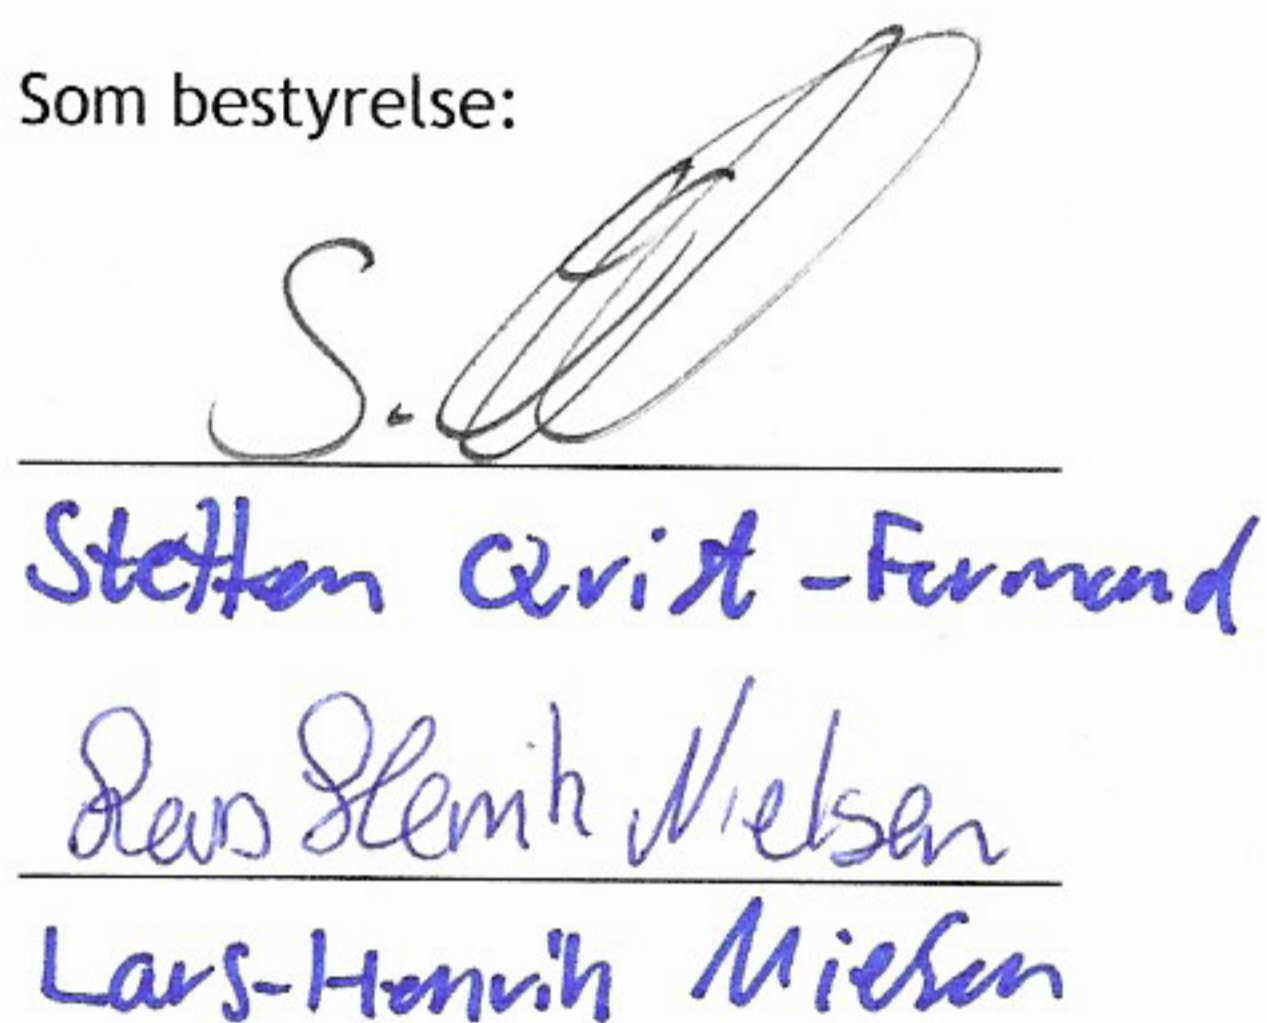 Som bestyrelse:
S.
Steffen Qvist-Furmand
Lars Henrik Nielsen
Lars-Henrik Nielsen